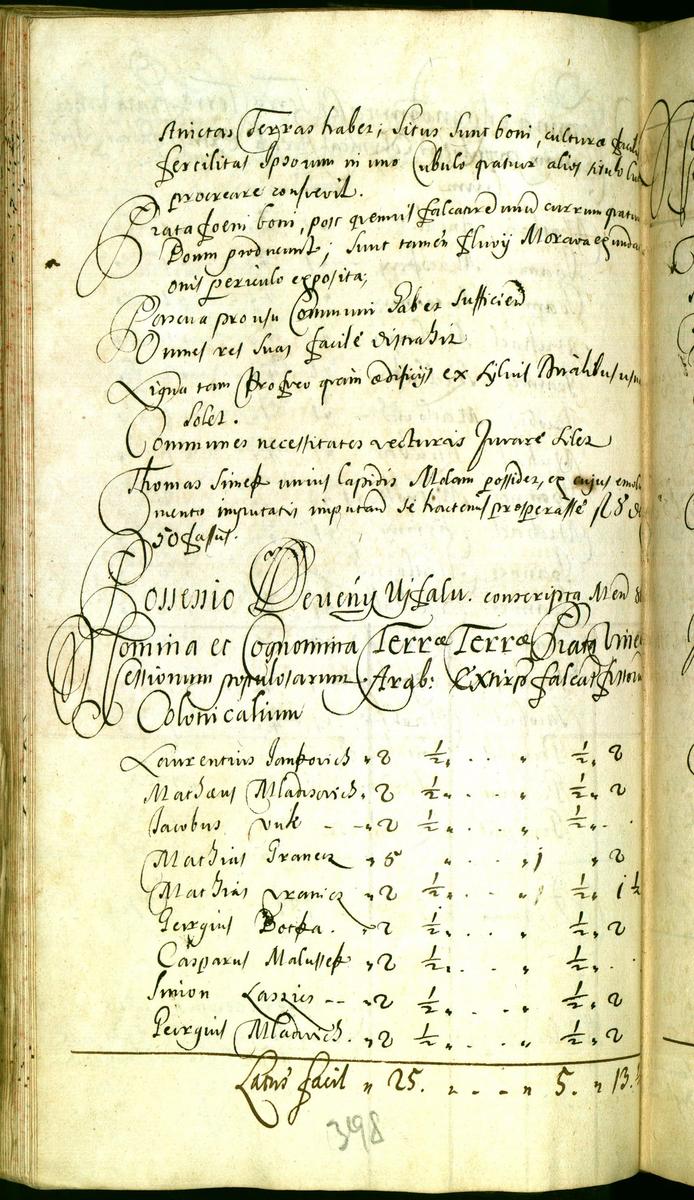 strictas Terras habet; Situs sunt boni, culturæ facilis
fertilitas Ipsorum in uno Cubulo quatuor alios titulo
procreare consvevit.
Prata foeni boni, post quemvis falcatorē unū currum quatuor
Boum producunt; sunt tamen fluvij Morava exunda
onis periculo exposita;
Pascua pro usu Communi habet sufficien
Omnes res suas facile distrahit
Ligna tam Pro foco quam ædificijs ex sylvis
solet.
Communes necessitates vecturis Juvare solet
Thomas Simek unius lapidis Molam possidet, ex cujus emolu
mento imputatis imputand se hactenus prosperasse fl 8 d
50 fassus.
Possessio Deveny Ujfalu. conscripta Men
Nomina et Cognomina Terræ Terræ Prata Vine
Sessionum populosarum Arab: Extirp falcat fossor
Colonicalium
Laurentius Jankovich „ 2 ½ „ . . „ ½ „ 2
Mathæus Mladisovich „ 2 ½ „ . . „ ½ „ 2
Jacobus Vuk - - „ 2 ½ „ . . „ ½ „ .
Mathias Granecz „ 5 „ . . „ 1 „ 2
Mathias Vranicz „ 2 ½ „ . . „ ½ „ 1 ½
Geirgius Botka . „ 2 ½ „ . . „ ½ „ 2
Casparus Malussek „ 2 ½ „ . . „ ½ „ .
Simon -- „ 2 ½ „ . . „ ½ „ 2
Geirgius Mladvich . „ 2 ½ „ . . „ ½ „ 2
Latus facit „ 25. „ . . „ 5. „ 13.
398